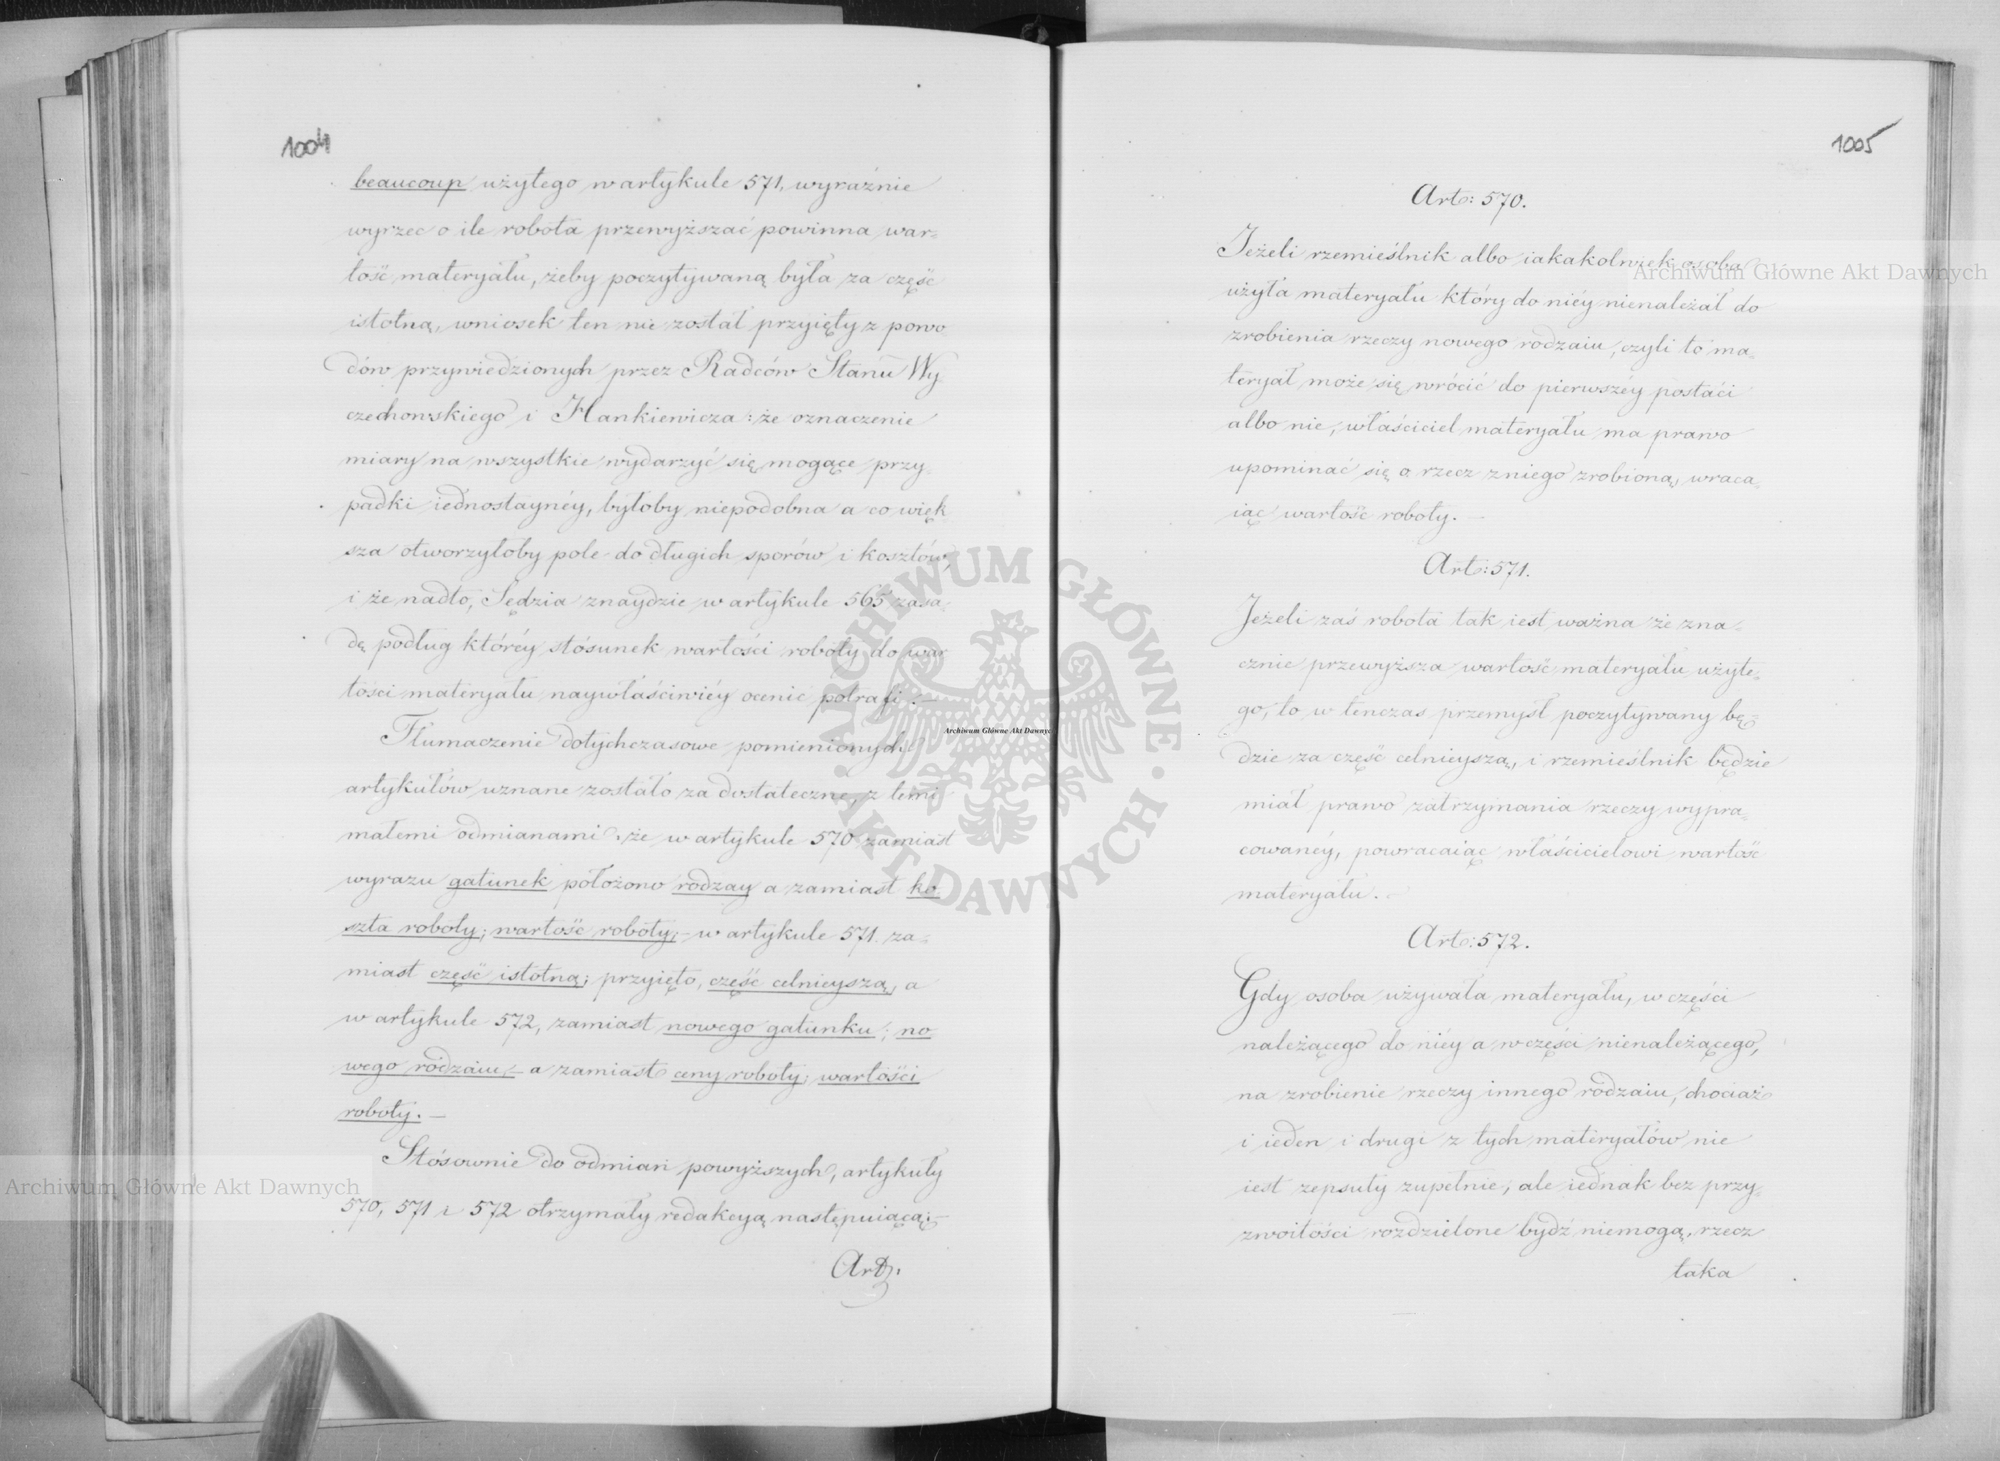 1004
beaucoup użytego w artykule 571, wyraźnie
wyrzec o ile robota przewyższać powinna war-
tość materyału, żeby poczytywaną była za część
istotną, wniosek ten nie został przyięty z powo
dów przywiedzionych przez Radców Stanu Wy
czechowskiego i Hankiewicza: że oznaczenie
miary na wszystkie wydarzyć się mogące przy-
padki iednostaynéy, byłoby niepodobna a co więk-
sza otworzyłoby pole do długich sporów i kosztów,
i że nadto, Sędzia znaydzie w artykule 565 zasa-
dę podług któréy stósunek wartości roboty do war
tości materyału naywłaściwiéy ocenić potrafi.—
Tłumaczenie dotychczasowe pomienionych
artykułów uznane zostało za dostateczne, z temi
małemi odmianami, że w artykule 570 zamiast
wyrazu gatunek położono rodzay a zamiast ko
szta roboty; wartość roboty;— w artykule 571 za-
miast część istotną; przyięto, część celnieyszą, a
w artykule 572, zamiast nowego gatunku; no
wego rodzaiu,— a zamiast ceny roboty; wartości
roboty.—
Stósownie do odmian powyższych, artykuły
570, 571 i 572 otrzymały redakcyą następuiącą:—
Art.
1005
Art: 570.
Jeżeli rzemieślnik albo iakakolwiek osoba
użyła materyału który do niéy nienależał do
zrobienia rzeczy nowego rodzaiu, czyli to ma-
teryał może się wrócić do pierwszéy postaci
albo nie, właściciel materyału ma prawo
upominać się o rzecz z niego zrobioną, wraca-
iąc wartość roboty.—
Art: 571.
Jeżeli zaś robota tak iest ważna że zna-
cznie przewyższa wartość materyału użyte-
go, to w tenczas przemysł poczytywany bę-
dzie za część celnieyszą, i rzemieślnik będzie
miał prawo zatrzymania rzeczy wypra-
cowanéy, powracaiąc właścicielowi wartość
materyału.—
Art: 572.
Gdy osoba używała materyału, w części
należącego do niéy a w części nienależącego,
na zrobienie rzeczy innego rodzaiu, chociaż
i ieden i drugi z tych materyałów nie
iest zepsuty zupełnie, ale iednak bez przy-
zwoitości rozdzielone bydź niemogą, rzecz
taka
Archiwum Główne Akt Dawnych
Archiwum Główne Akt Dawnych
Archiwum Główne Akt Dawnyc
ARCHIWUM GŁÓWNE · AKT DAWNYCH ·